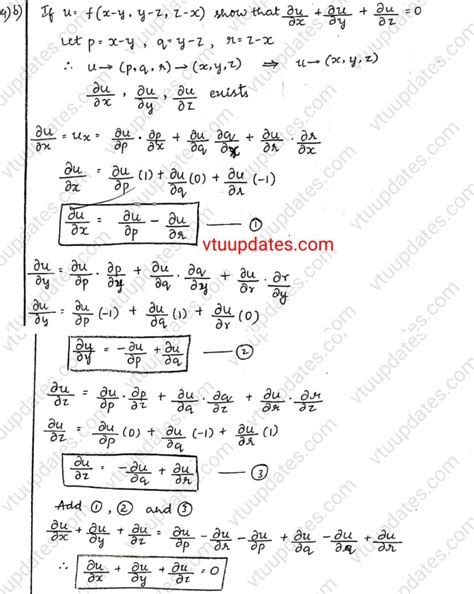 a) b) If u = f(x-y, y-z, z-x) show that ∂u/∂x + ∂u/∂y + ∂u/∂z = 0
Let p = x-y , q = y-z , r = z-x
∴ u → (p, q, r) → (x, y, z) ⇒ u → (x, y, z)
∂u/∂x , ∂u/∂y , ∂u/∂z exists
∂u/∂x = u_x = ∂u/∂p · ∂p/∂x + ∂u/∂q · ∂q/∂x + ∂u/∂r · ∂r/∂x
∂u/∂x = ∂u/∂p (1) + ∂u/∂q (0) + ∂u/∂r (-1)
∂u/∂x = ∂u/∂p - ∂u/∂r — ①
vtuupdates.com
∂u/∂y = ∂u/∂p · ∂p/∂y + ∂u/∂q · ∂q/∂y + ∂u/∂r · ∂r/∂y
∂u/∂y = ∂u/∂p (-1) + ∂u/∂q (1) + ∂u/∂r (0)
∂y/∂y = -∂u/∂p + ∂u/∂q — ②
∂u/∂z = ∂u/∂p · ∂p/∂z + ∂u/∂q · ∂q/∂z + ∂u/∂r · ∂r/∂z
∂u/∂z = ∂u/∂p (0) + ∂u/∂q (-1) + ∂u/∂r (1)
∂u/∂z = -∂u/∂q + ∂u/∂r — ③
Add ①, ② and ③
∂u/∂x + ∂u/∂y + ∂u/∂z = ∂u/∂p - ∂u/∂r - ∂u/∂p + ∂u/∂q - ∂u/∂q + ∂u/∂r
∴ ∂u/∂x + ∂u/∂y + ∂u/∂z = 0